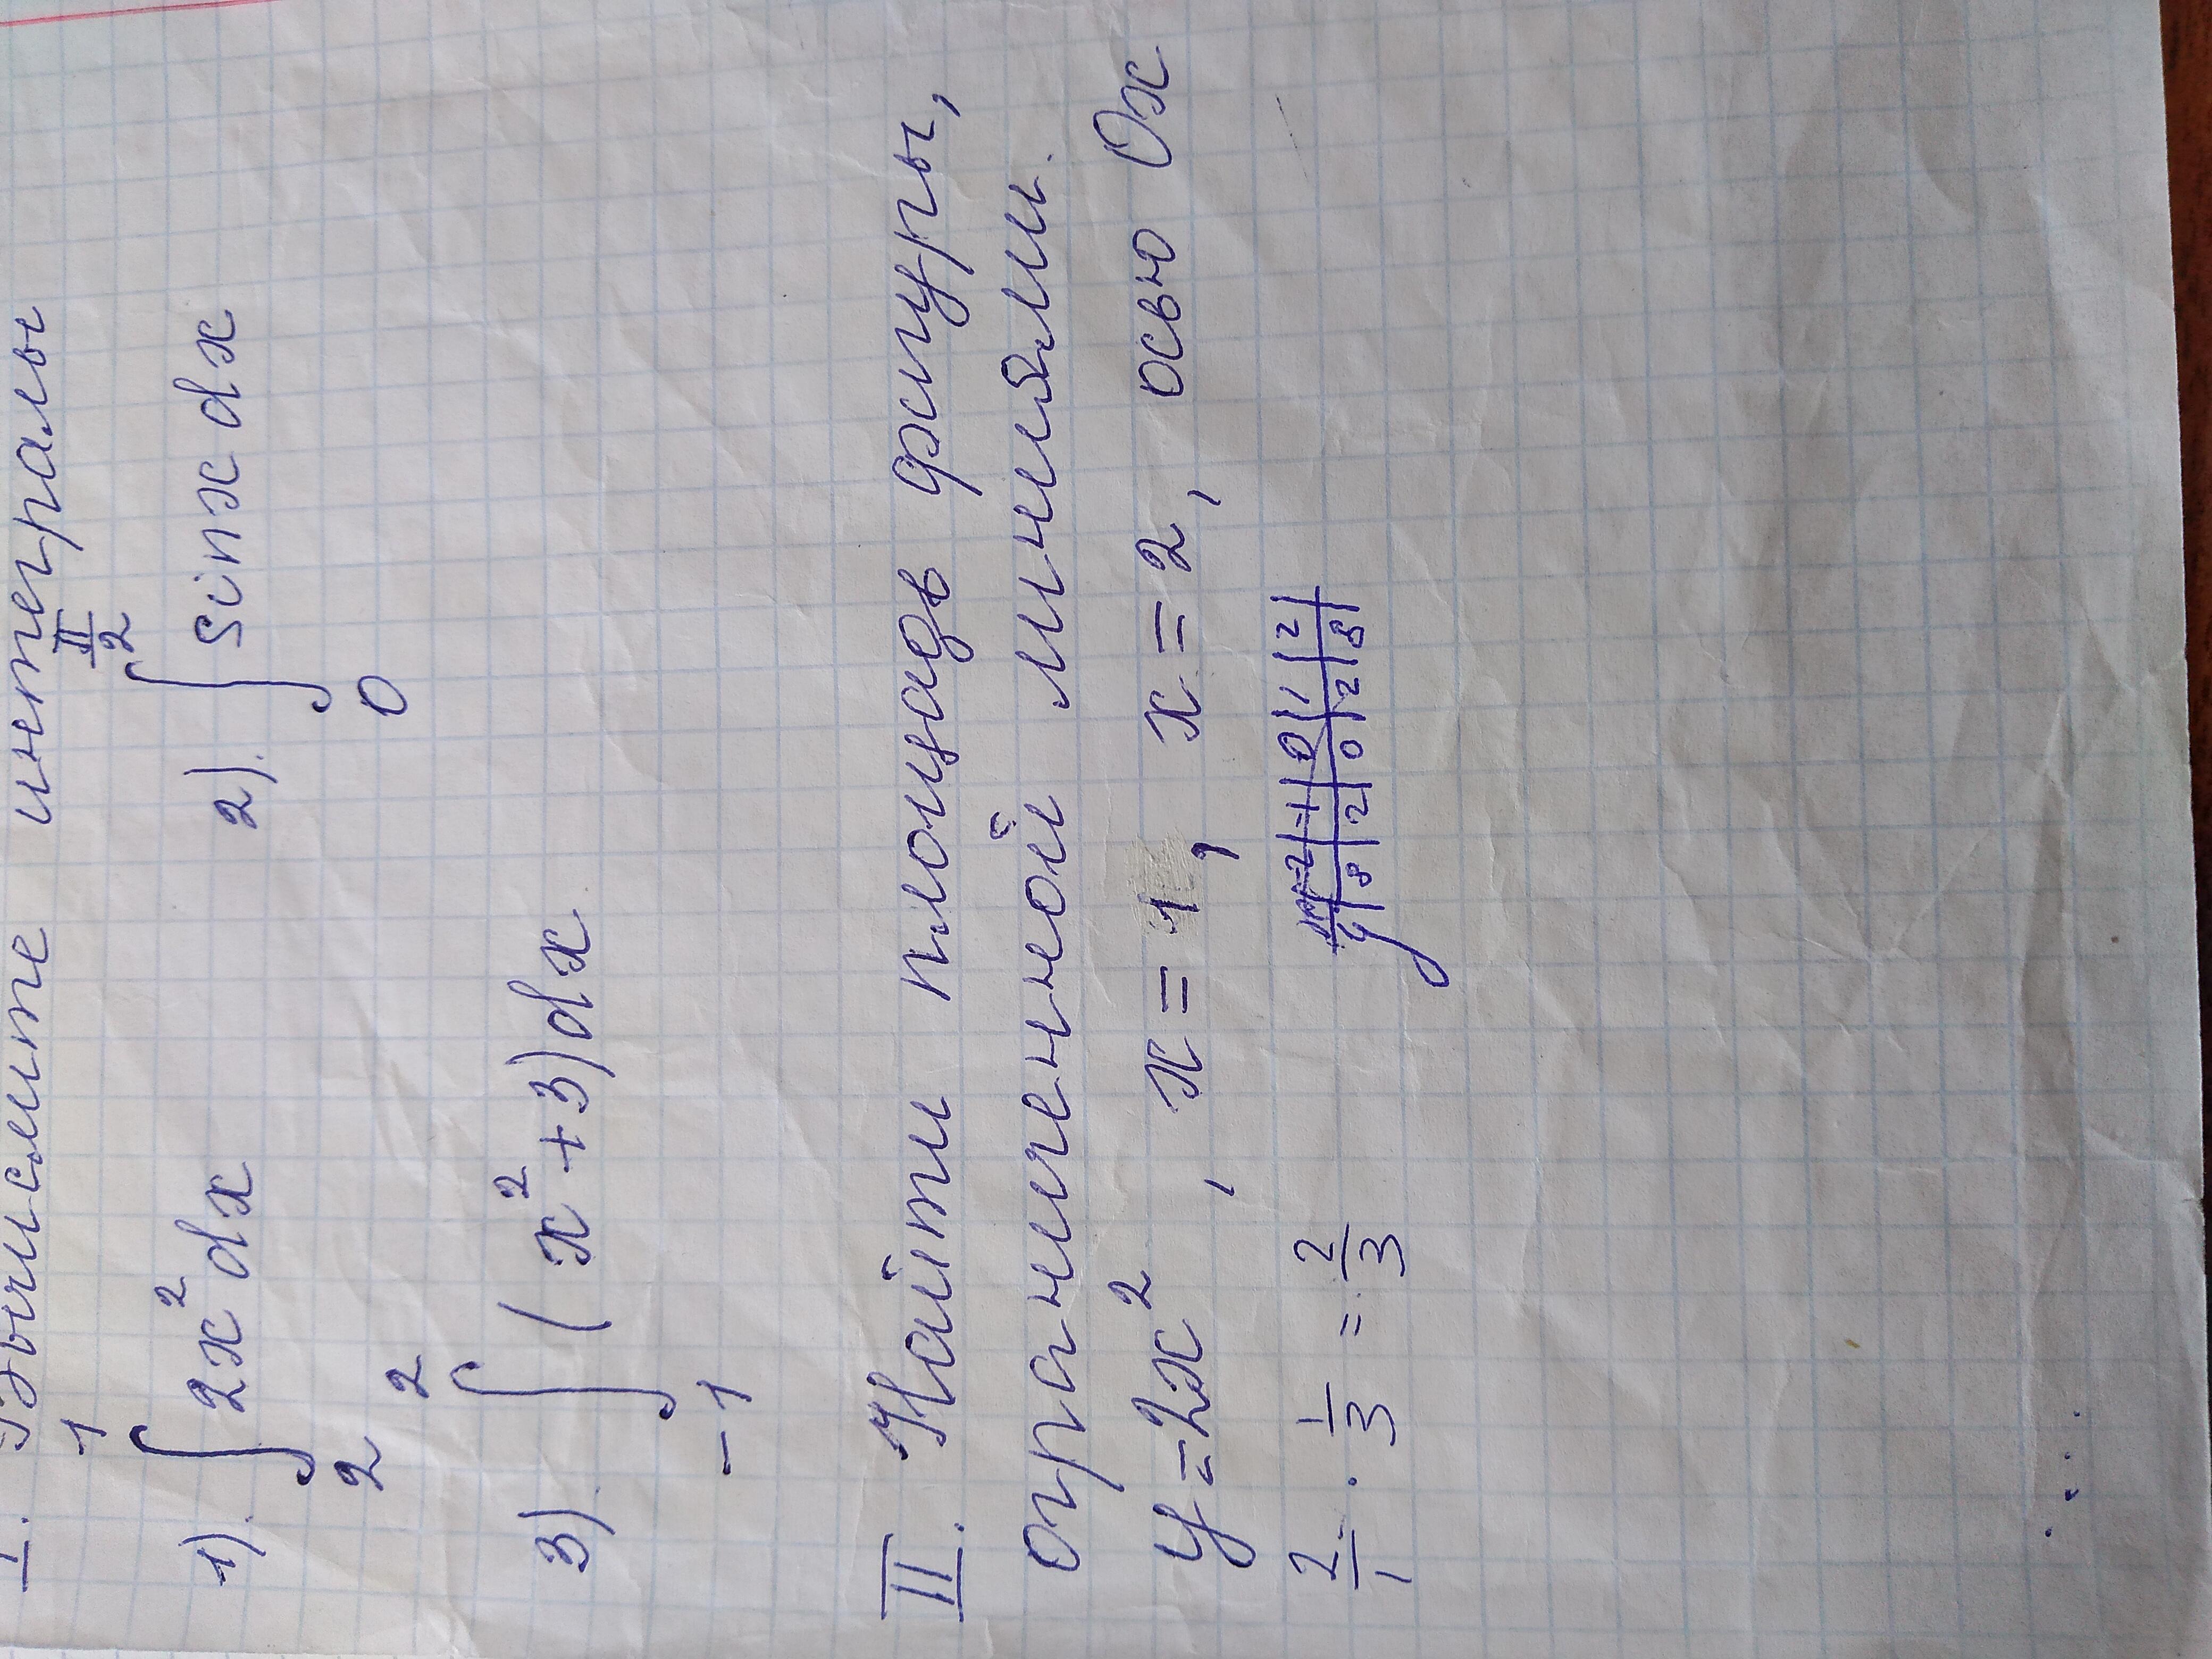 I. Вычислите интегралы
1). ∫₂¹ 2x² dx 2). ∫₀^(π/2) sin x dx
3). ∫₋₁² (x² + 3) dx
II. Найти площадь фигуры,
ограниченной линиями.
y = 2x², x = 1, x = 2, осью Ox
2/1 · 1/3 = 2/3
x | -2 | -1 | 0 | 1 | 2
y | 8 | 2 | 0 | 2 | 8